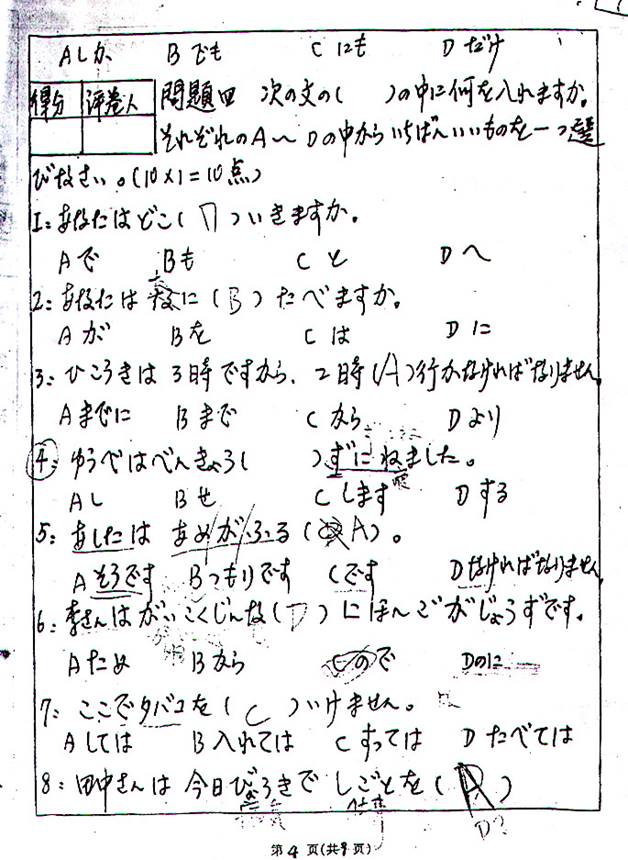 Aしか Bでも Cにも Dだけ
得分 评卷人 問題四 次の文の( )の中に何を入れますか。
それぞれのA～Dの中からいちばんいいものを一つ選
びなさい。(10×1=10点)
1:あなたはどこ( D )いきますか。
Aで Bも Cと Dへ
2:あなたは に( B )たべますか。
Aが Bを Cは Dに
3:ひこうきは3時ですから、2時(A)行かなければなりません。
Aまでに Bまで Cから Dより
4:ゆうべはべんきょう( )ずにねました。
Aし Bせ Cします Dする
5:あしたは あめがふる( A)。
Aそうです Bつもりです Cです Dなければなりません
6:李さんはがいこくじんな(D)にほんごがじょうずです。
Aため Bから Cので Dのに
7:ここでタバコを( C )いけません。
Aしては B入れては Cすっては Dたべては
8:田中さんは今日びょうきでしごとを( )
D?
第4页(共8页)